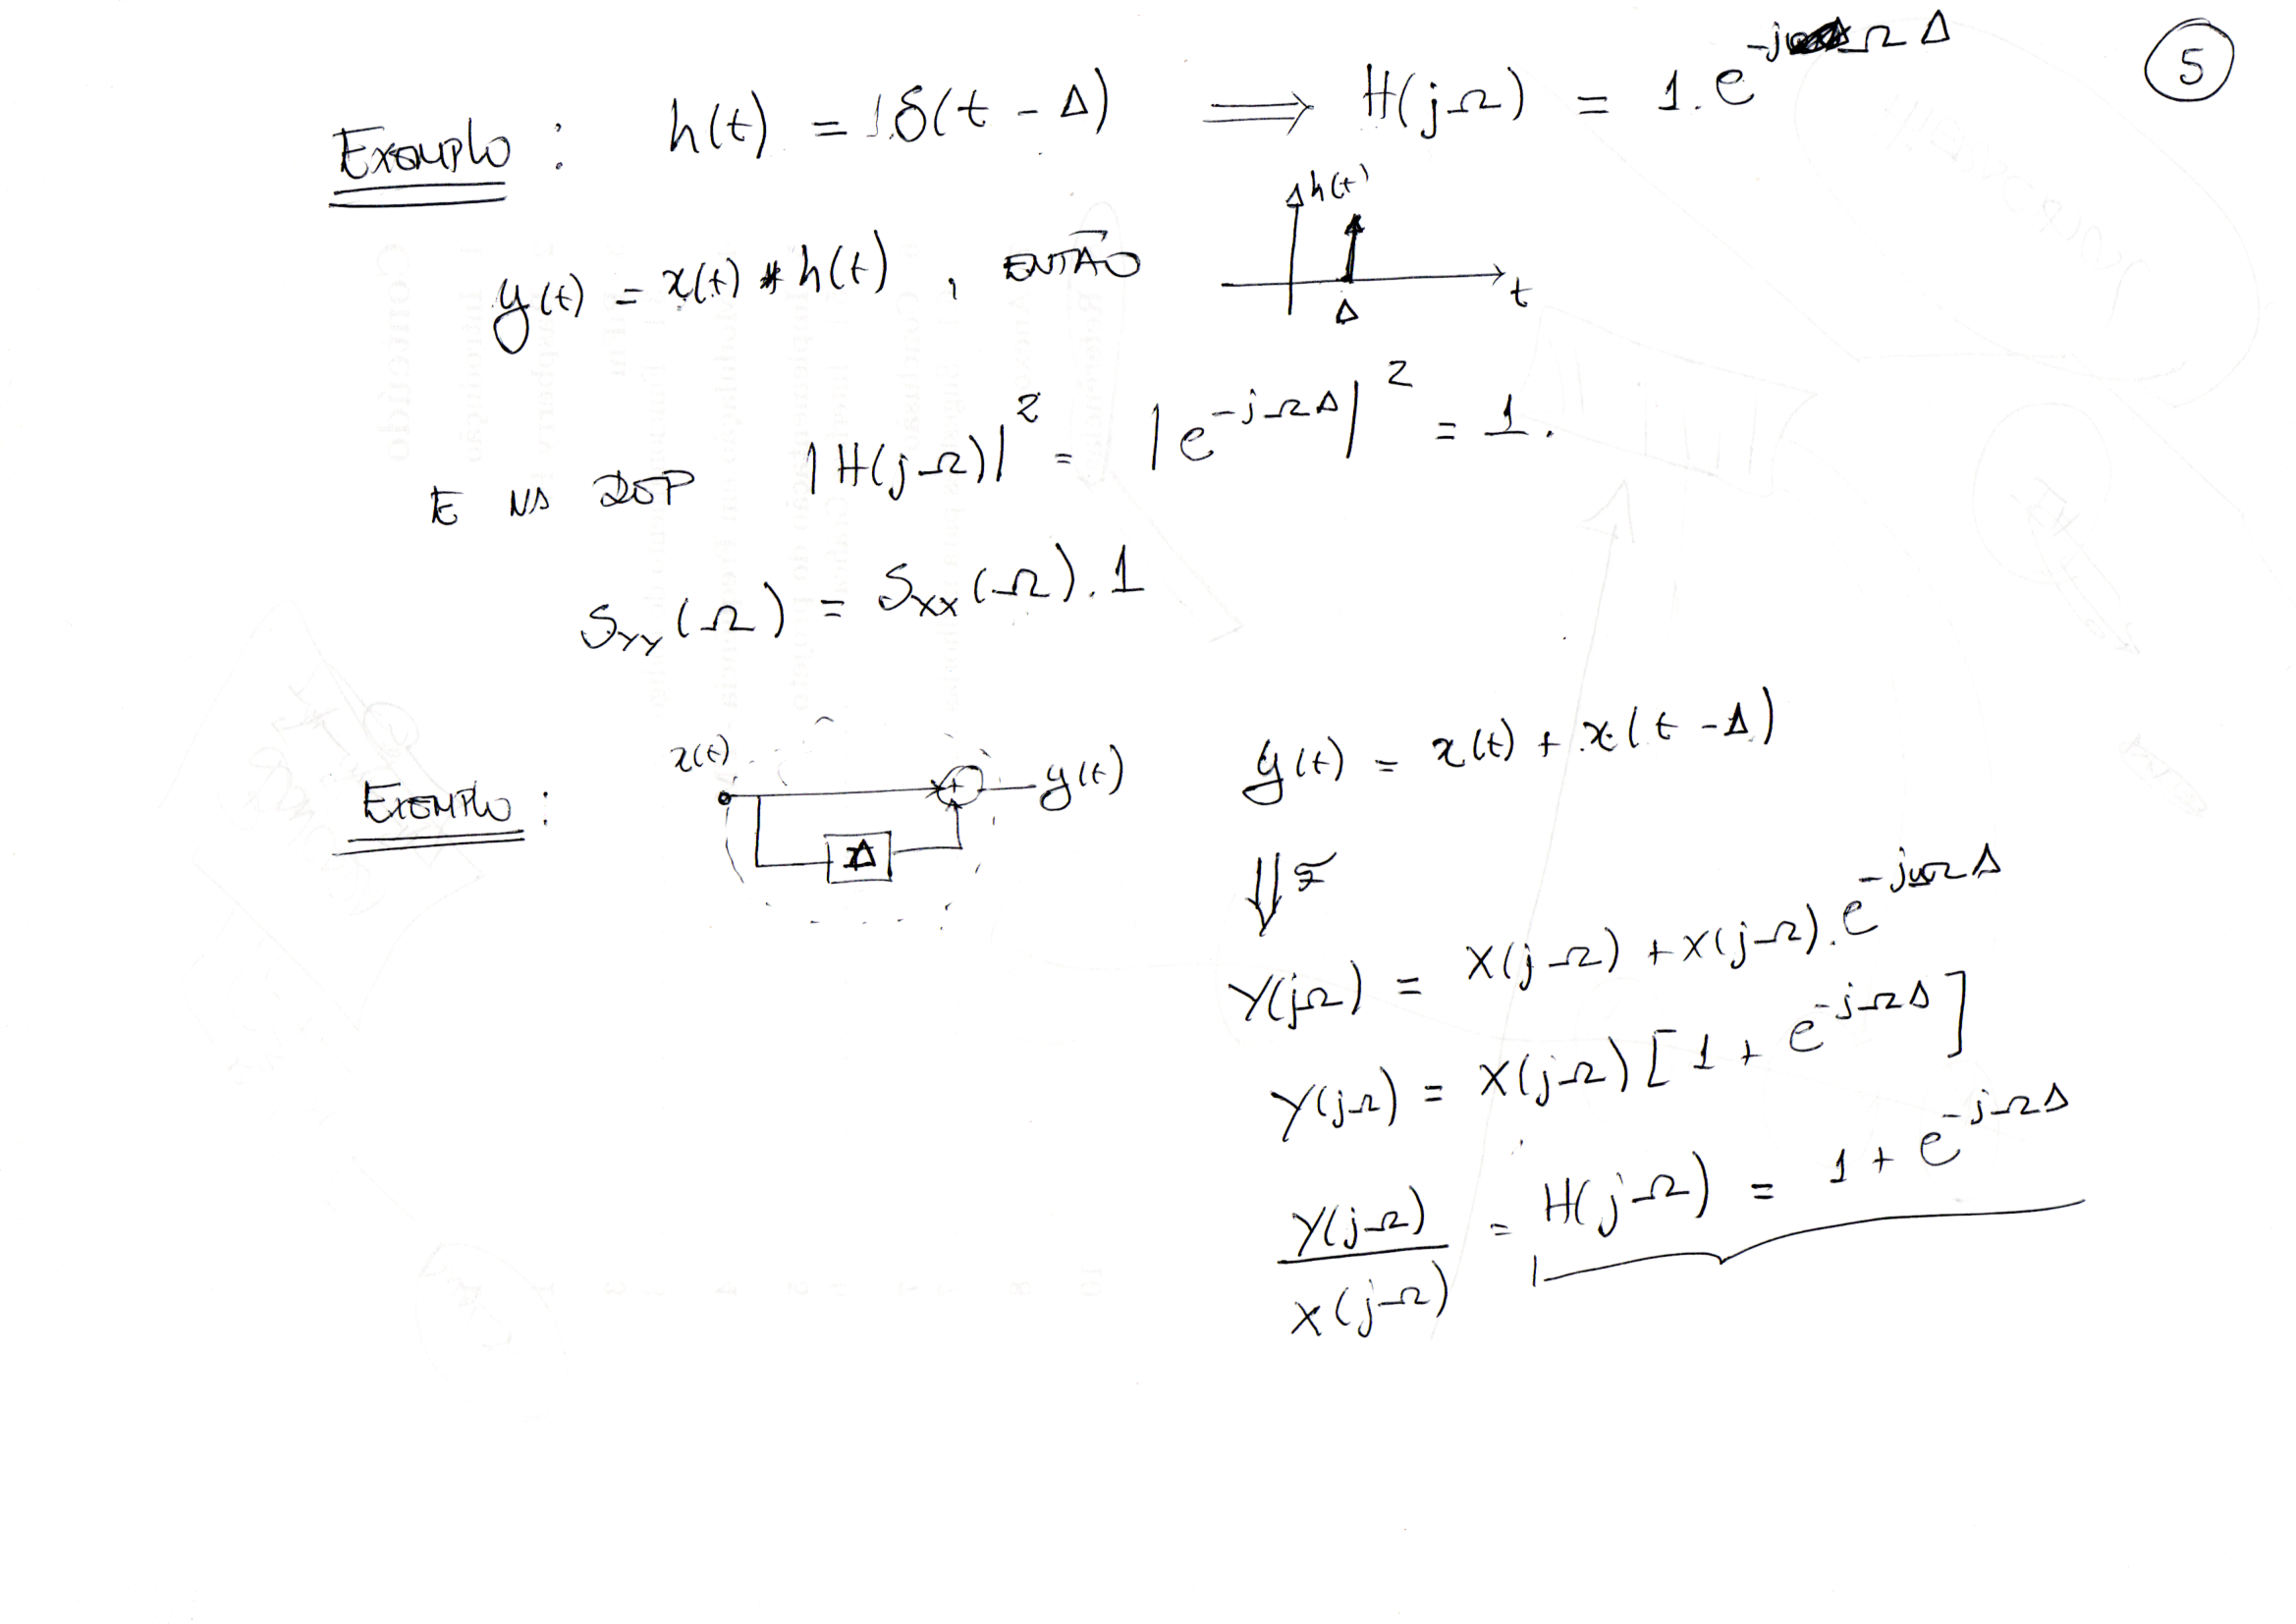 5
Exemplo : h(t) = 1.δ(t - Δ) ⟹ H(jΩ) = 1. e^{-jΩΔ}
h(t)
y(t) = x(t) * h(t) , ENTÃO
t
Δ
E NA DSP |H(jΩ)|² = |e^{-jΩΔ}|² = 1.
S_{YY}(Ω) = S_{XX}(Ω).1
Exemplo :
x(t)
+
y(t)
Δ
y(t) = x(t) + x(t - Δ)
⇓ F
Y(jΩ) = X(jΩ) + X(jΩ). e^{-jΩΔ}
Y(jΩ) = X(jΩ) [1 + e^{-jΩΔ}]
Y(jΩ)/X(jΩ) = H(jΩ) = 1 + e^{-jΩΔ}